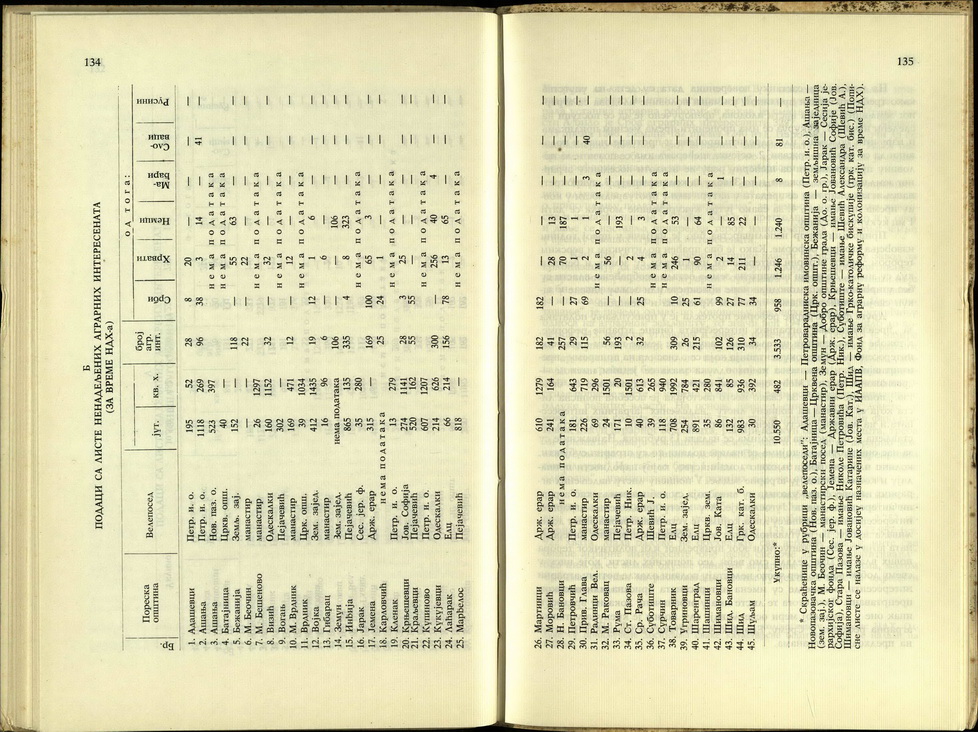 134
Б
ПОДАЦИ СА ЛИСТЕ НЕНАДЕЉЕНИХ АГРАРНИХ ИНТЕРЕСЕНАТА
(ЗА ВРЕМЕ НДХ-а)
Бр. Пореска општина Велепосед јут. кв. х. број агр. инт. од тога: Срби Хрвати Немци Ма-ђари Сло-ваци Русини
1. Адашевци Петр. и. о. 195 52 28 8 20 — — — —
2. Ашања Петр. и. о. 1118 269 96 38 3 14 — 41 —
3. Ашања Нов. паз. о. 523 397 нема података
4. Батајница Цркв. опш. 40 нема података
5. Бежанија Земљ. зај. 152 — 118 — 55 63 — — —
6. М. Беочин манастир — — 22 — 22 — — — —
7. М. Бешеново манастир 26 1297 нема података
8. Визић Одескалки 160 1152 32 — 32 — — — —
9. Вогањ Пејачевић 302 — нема података
10. М. Врдник манастир 169 471 12 — 12 — — — —
11. Врдник Црк. опш. 39 1034 нема података
12. Војка Зем. зајед. 412 1435 19 12 1 6 — — —
13. Гибарац манастир 16 96 6 — 6 — — — —
14. Земун Зем. зајед. нема података 106 — — 106 — — —
15. Инђија Пејачевић 865 135 335 4 8 323 — — —
16. Јарак Сес. јер. ф. 35 280 нема података
17. Јемена Арж. ерар 315 — 169 100 65 3 — — —
18. Карловчић нема података 25 24 1 — — — —
19. Кленак Петр. и. о. 13 1279 нема података
20. Крњешевци Јов. Софија 274 1141 28 3 25 — — — —
21. Краљевци Пејачевић 520 162 55 55 — — — — —
22. Купиново Петр. и. о. 607 1207 нема података
23. Кукујевци Одескалки 214 626 300 — 256 40 4 — —
24. Лаћарак Елц 66 214 156 78 13 65 — — —
25. Марђелос Пејачевић 818 — нема података
135
26. Мартинци Арж. ерар 610 1279 182 182 — — — — —
27. Моровић Арж. ерар 241 164 41 — 28 13 — — —
28. Н. Бановци нема података 257 — 70 187 — * —
29. Петровчић Петр. и. о. 181 643 29 27 1 1 — — —
30. Прив. Глава манастир 226 719 115 69 2 1 3 40 —
31. Радинци Вел. Одескалки 69 296 нема података
32. М. Раковац манастир 24 1501 56 — 56 — — — —
33. Рума Пејачевић 171 20 193 — — 193 — — —
34. Ст. Пазова Петр. Ник. 10 1501 2 — 2 — — — —
35. Ср. Рача Арж. ерар 40 613 32 25 4 3 — — —
36. Суботиште Шевић Ј. 39 265 нема података
37. Сурчин Петр. и. о. 118 940 нема података
38. Товарник Елц 708 1992 309 10 246 53 — — —
39. Угриновци Зем. зајед. 254 784 26 25 1 — — — —
40. Шаренград Елц 891 421 215 61 90 64 — — —
41. Шашинци Цркв. зем. 35 280 нема података
42. Шимановци Јов. Ката 86 841 102 99 2 — 1 — —
43. Шид. Бановци Елц 132 85 126 27 14 85 — — —
44. Шид Грк. кат. б. 983 936 310 77 211 22 — — —
45. Шуљам Одескалки 30 392 34 34 — — — — —
Укупно:* 10.550 482 3.533 958 1.246 1.240 8 81 —
* Скраћенице у рубрици „велепоседи”: Адашевци — Петроварадинска имовинска општина (Петр. и. о.), Ашања —
Новопазовачка општина (Нов. паз. о.), Батајница — Црквена општина (Црк. општ.), Бежанија — земљишна заједница
(зем. зај.), М. Беочин — манастирски посед (манастир), Земун — Добро општине града (До. о. гр.), Јарак — Сесија је-
рархијског фонда (Сес. јер. ф.), Јемена — Државни ерар (Држ. ерар), Крњешевци — имање Јовановић Софије (Јов.
Софија), Стара Пазова — имање Николе Петровића (Петр. Ник.), Суботиште — имање Шевић Александра (Шевић А.),
Шимановци — имање Јовановић Катарине (Јов. Кат.), Шид — имање Грко-католичке бискупије (грк. кат. бис.) (Попи-
сне листе се налазе у досијеу назначених места у ИААПВ, Фонд за аграрну реформу и колонизацију за време НДХ).